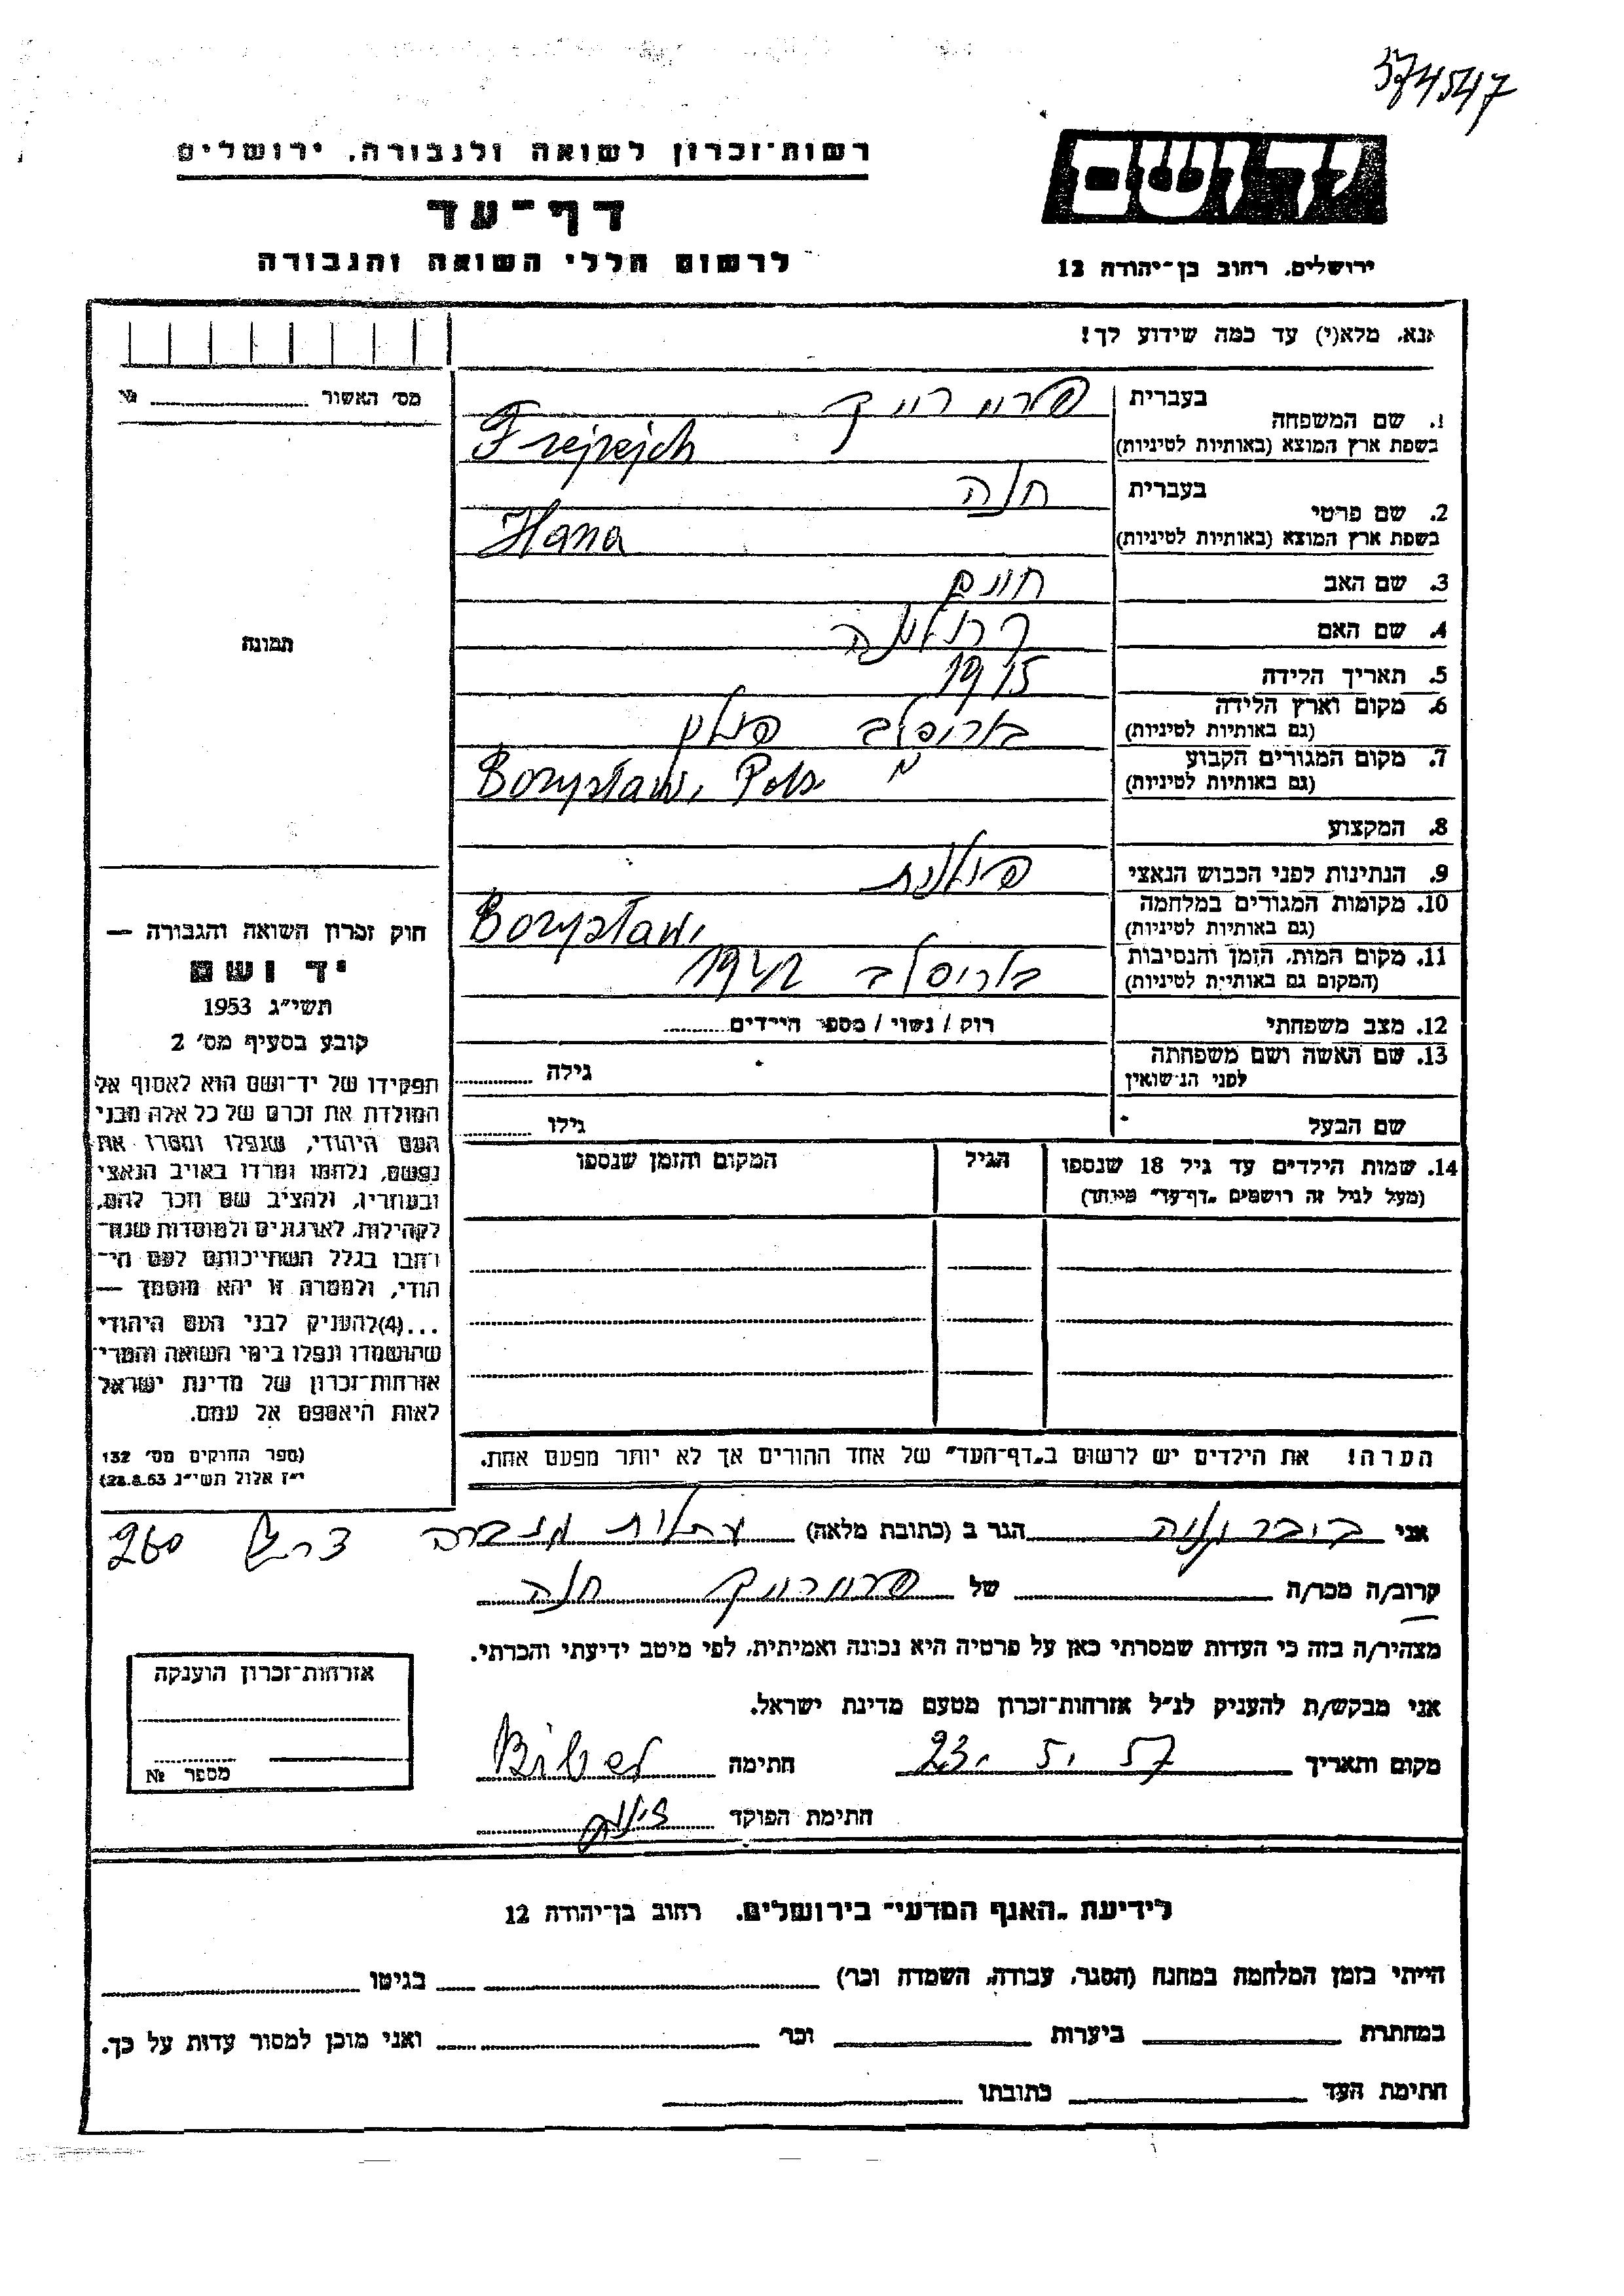 374547
רשות־זכרון לשואה ולגבורה, ירושלים
יד ושם
דף־עד
לרשום חללי השואה והגבורה
ירושלים, רחוב בן־יהודה 12
אנא, מלא(י) עד כמה שידוע לך!
מס׳ האשור № 
1. שם המשפחה
בעברית פרייריך
בשפת ארץ המוצא (באותיות לטיניות) Frejrejch
2. שם פרטי
בעברית חנה
בשפת ארץ המוצא (באותיות לטיניות) Hana
3. שם האב חיים
4. שם האם
5. תאריך הלידה 1915
6. מקום וארץ הלידה
(גם באותיות לטיניות) בוריסלב פולין
7. מקום המגורים הקבוע
(גם באותיות לטיניות) Borysław, Pols
8. המקצוע
9. הנתינות לפני הכבוש הנאצי פולנית
10. מקומות המגורים במלחמה
(גם באותיות לטיניות) Borysław,
11. מקום המות, הזמן והנסיבות
(המקום גם באותיית לטיניות) בוריסלב 1942
12. מצב משפחתי רוק / נשוי / מספר הילדים
13. שם האשה ושם משפחתה
לפני הנישואין גילה
שם הבעל גילו
14. שמות הילדים עד גיל 18 שנספו
(מעל לגיל זה רושמים „דף־עד״ מיוחד)
הגיל
המקום והזמן שנספו
הערה! את הילדים יש לרשום ב„דף־העד״ של אחד ההורים אך לא יותר מפעם אחת.
תמונה
חוק זכרון השואה והגבורה —
יד ושם
תשי״ג 1953
קובע בסעיף מס׳ 2
תפקידו של יד־ושם הוא לאסוף אל
המולדת את זכרם של כל אלה מבני
העם היהודי, שנפלו ומסרו את
נפשם, נלחמו ומרדו באויב הנאצי
ובעוזריו, ולהציב שם וזכר להם,
לקהילות, לארגונים ולמוסדות שנח־
רחבו בגלל השתייכותם לעם הי־
הודי, ולמטרה זו יהא מוסמך —
...(4)להעניק לבני העם היהודי
שהושמדו ונפלו בימי השואה והמרי־
אזרחות־זכרון של מדינת ישראל
לאות היאספם אל עמם.
(ספר החוקים מס׳ 132
י״ז אלול תשי״ג 28.8.53)
אני ביבר הגר ב (כתובת מלאה) עתלית מעברה צריף 260
קרוב/ה מכר/ה של פרייריך חנה
מצהיר/ה בזה כי העדות שמסרתי כאן על פרטיה היא נכונה ואמיתית, לפי מיטב ידיעתי והכרתי.
אני מבקש/ת להעניק לנ״ל אזרחות־זכרון מטעם מדינת ישראל.
מקום ותאריך 23. 5. 57 חתימה Biber
חתימת הפוקד
אזרחות־זכרון הוענקה
מספר №
לידיעת „האגף המדעי״ בירושלים, רחוב בן־יהודה 12
הייתי בזמן המלחמה במחנה (הסגר, עבודה, השמדה וכו׳) בגיטו
במחתרת ביערות וכו׳ ואני מוכן למסור עדות על כך.
חתימת העד כתובתו